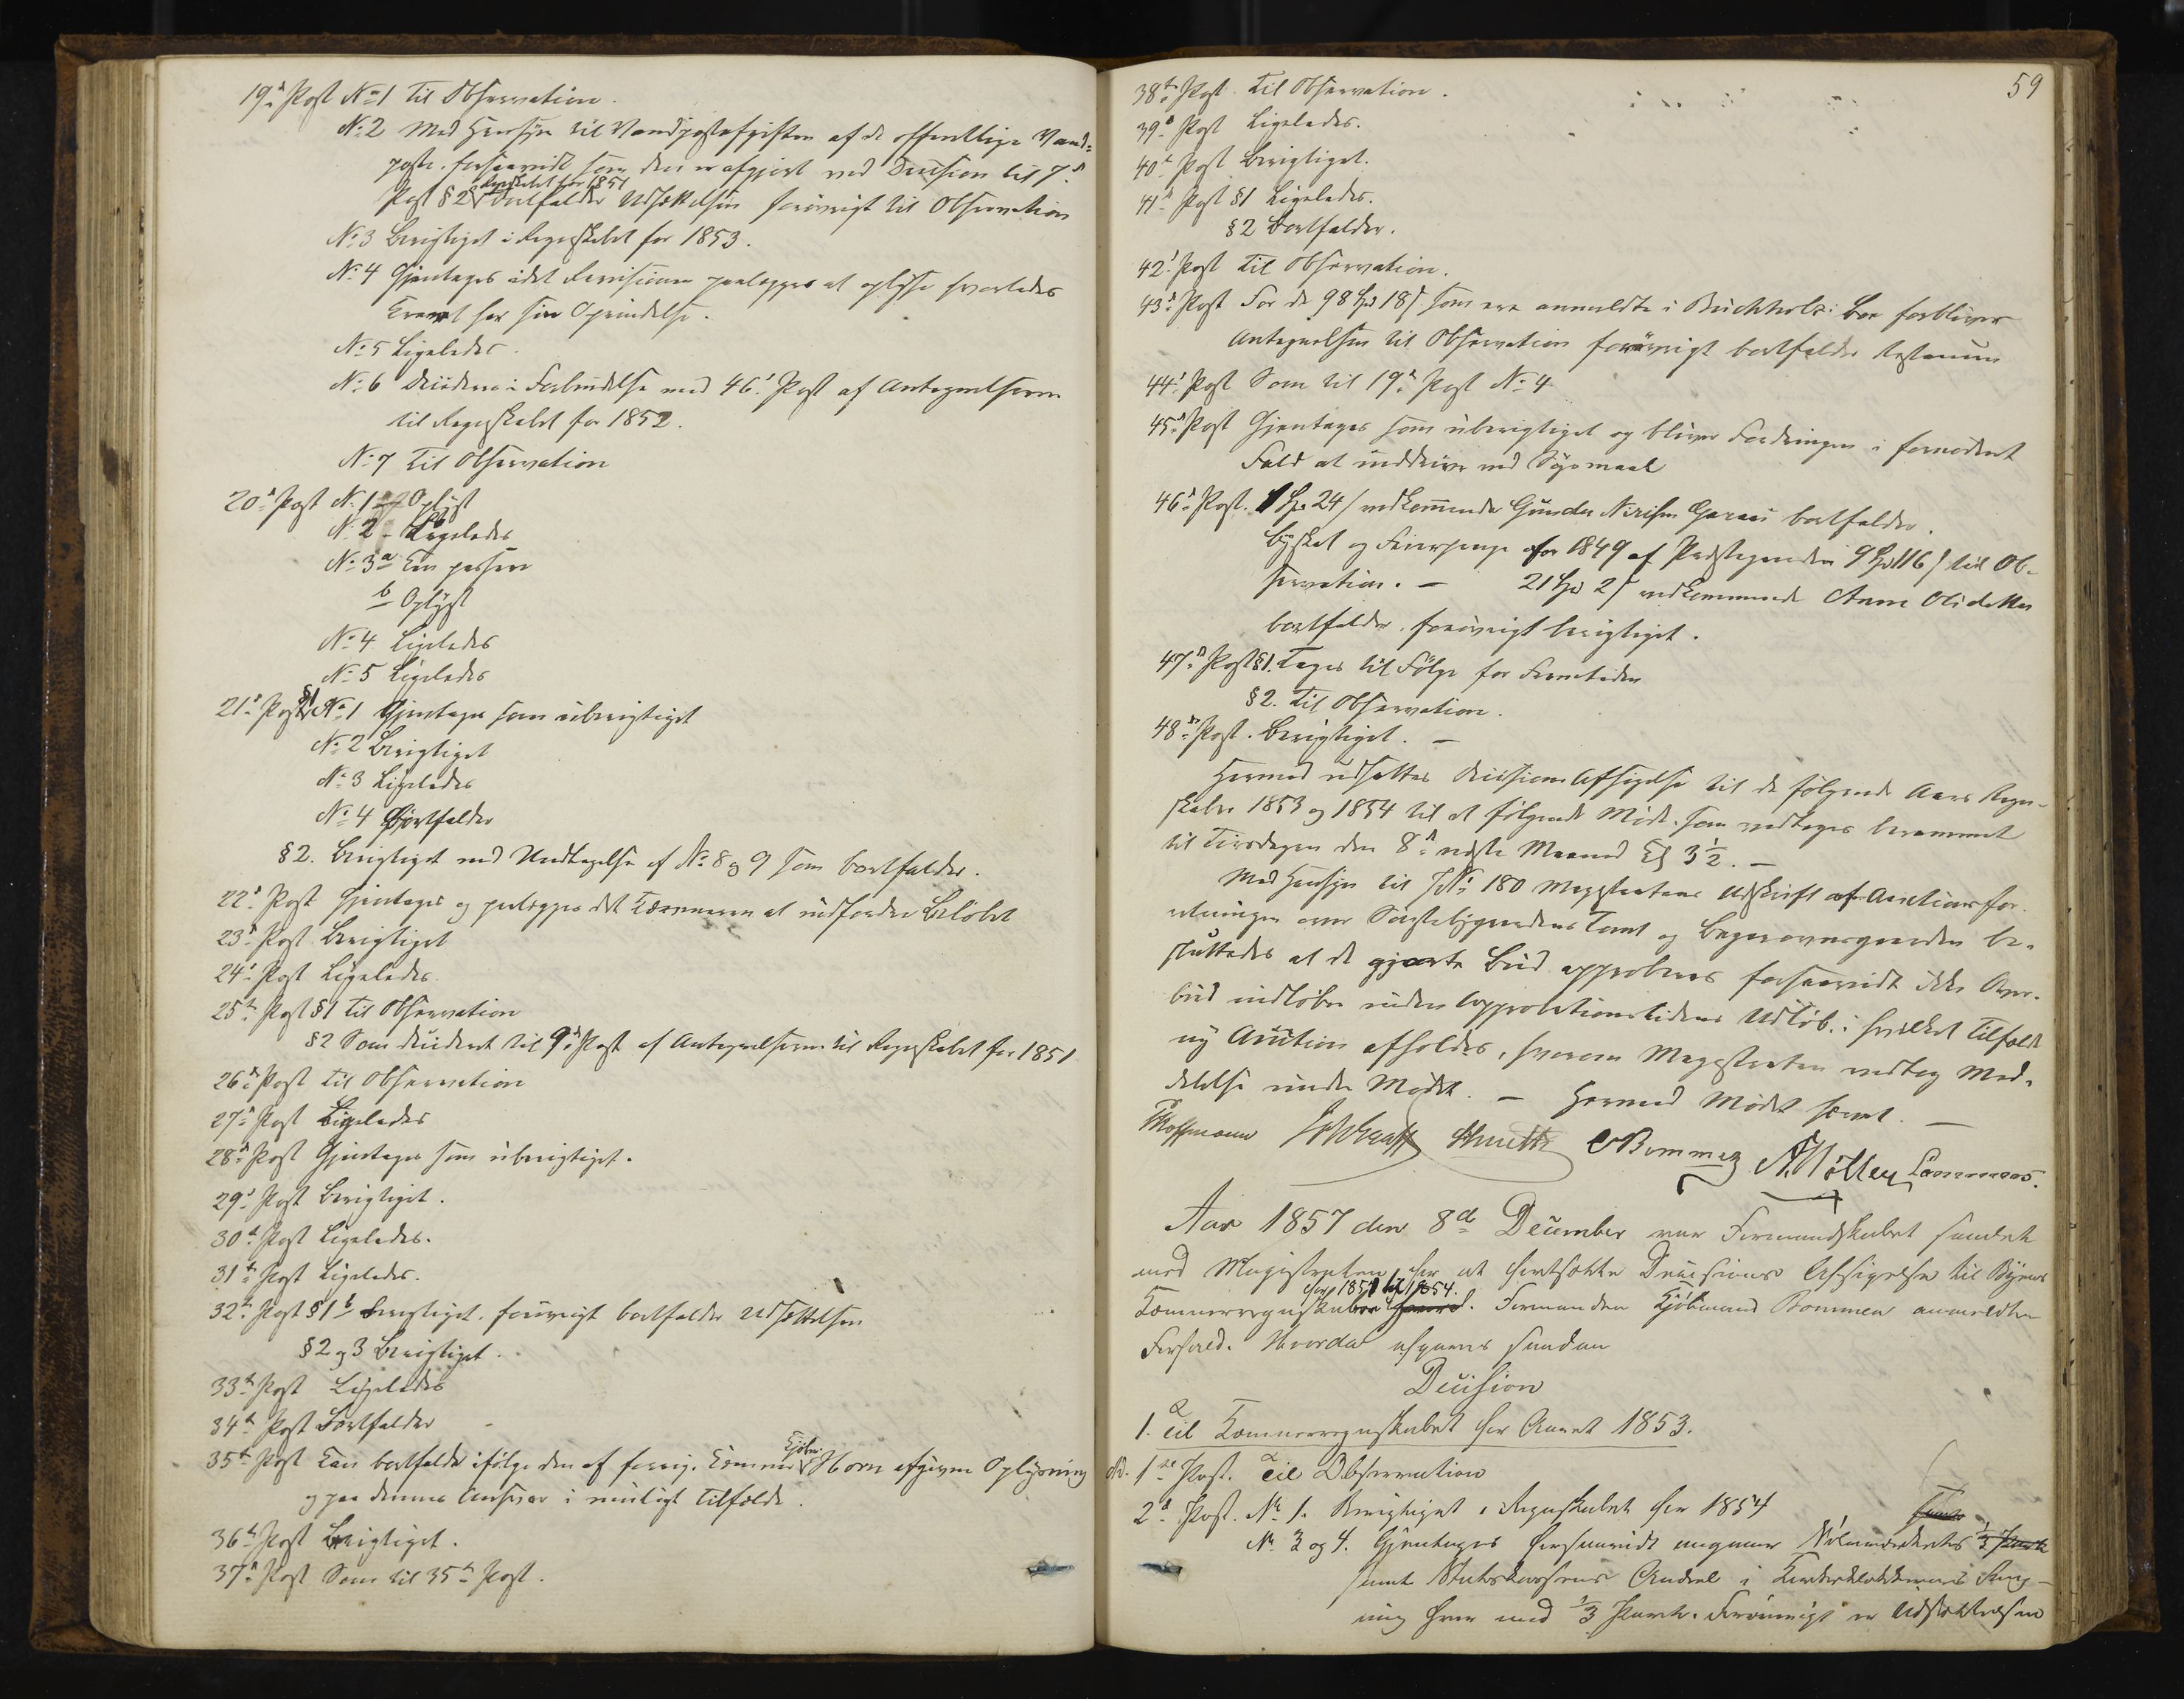 19de Post No 1 Til Observation.
No 2 Med Hensyn til Vandpostafgiften af de offentlige Vand=
poste, forsaavidt som den er afgjort ved Decision til 7de
Post § 2 Regnskabet for 1851 bortfalder Udsættelsen forøvrigt til Observation
No 3 Berigtiget i Regnskabet for 1853.
No 4 Gjentages idet Revisionen paalægges at oplyse hvorledes
Kravet har sin Oprindelse.
No 5 Ligeledes.
No 6 Decideres i Forbindelse med 46de Post af Antegnelserne
til Regnskabet for 1852.
No 7 Til Observation
20de Post No 1 Oplyst
No 2 - Ligeledes
No 3 a Kan passere
b Oplyst
No 4 Ligeledes
No 5 Ligeledes
21de Post §1 No 1 Gjentages som uberigtiget
No 2 Berigtiget
No 3 Ligeledes
No 4 Bortfalder
§ 2. Berigtiget med Undtagelse af No 8 og 9 som bortfalder.
22de Post Gjentages og paalægges det Kæmneren at indfordre Beløbet
23de Post Berigtiget
24de Post Ligeledes.
25de Post § 1 Til Observation
§ 2 Som decideret til 9de Post af Antegnelserne til Regnskabet for 1851
26de Post Til Observation
27de Post Ligeledes
28de Post Gjentages som uberigtiget.
29de Post Berigtiget.
30te Post Ligeledes.
31te Post Ligeledes.
32te Post § 1 Berigtiget. forøvrigt bortfalder Udsættelsen
§ 2 og 3 Berigtiget.
33te Post Ligeledes
34te Post Bortfalder
35te Post Kan bortfalde ifølge den af forrige Kæmner Kjøbm. Horn afgivne Oplysning
og paa dennes Ansvar i muligt Tilfælde.
36te Post Berigtiget.
37te Post Som til 35te Post.
59
38te Post Til Observation.
39te Post Ligeledes.
40de Post Berigtiget.
41de Post § 1 Ligeledes.
§ 2 Bortfalder.
42de Post Til Observation.
43de Post For de 98 Spd 18 s som ere anmeldte i Buchholz: Boe forbliver
Antegnelsen til Observation forøvrigt bortfalder Restancen
44de Post Som til 19de Post No 4
45de Post Gjentages som uberigtiget og bliver Fordringen i fornødent
Fald at inddrive ved Søgsmaal
46de Post. 1 Spd 24 s vedkommende Gunder bortfalder.
Byskat og for 1849 af Præstegaarden 9 Spd 116 s til Ob-
servation. — 21 Spd 2 s vedkommende Anne Olsdatter
bortfalder. forøvrigt berigtiget.
47de Post § 1. Tages til Følge for Fremtiden
§ 2. Til Observation.
48de Post. Berigtiget. —
Hermed udsattes Decisions Afsigelse til de følgende Aars Regn-
skaber 1853 og 1854 til et følgende Møde, som vedtoges berammet
til Tirsdagen den 8de næste Maaned Kl 3½. —
Med Hensyn til J No 180 Magistratens Udskrift af Auctionsfor-
retningen over Tomt og be-
sluttedes at de gjorte Bud approberes forsaavidt ikke Over-
bud indløber inden Approbationstidens Udløb, i hvilket Tilfælde
ny Auction afholdes, hvorom Magistraten vedtog Med-
delelse under Mødet. — Hermed Mødet hævet. —
Hoffmann C Bommen A. Møller
Aar 1857 den 8de December var Formandskabet samlet
med Magistraten for at fortsætte Decisions Afsigelse til Byens
Kæmnerregnskaber for 1851 til 1854. Formanden Kjøbmand Bommen anmeldte
Forfald. Hvorda afgaves saadan
Decision
1. Til Kæmnerregnskabet for Aaret 1853.
Ad. 1ste Post. Til Observation
2de Post. No 1. Berigtiget i Regnskabet for 1854
No 3 og 4. Gjentages forsaavidt angaaer
samt Statskassens Andeel i
ning hver med 1/3 Part. Forøvrigt er Udsættelsen